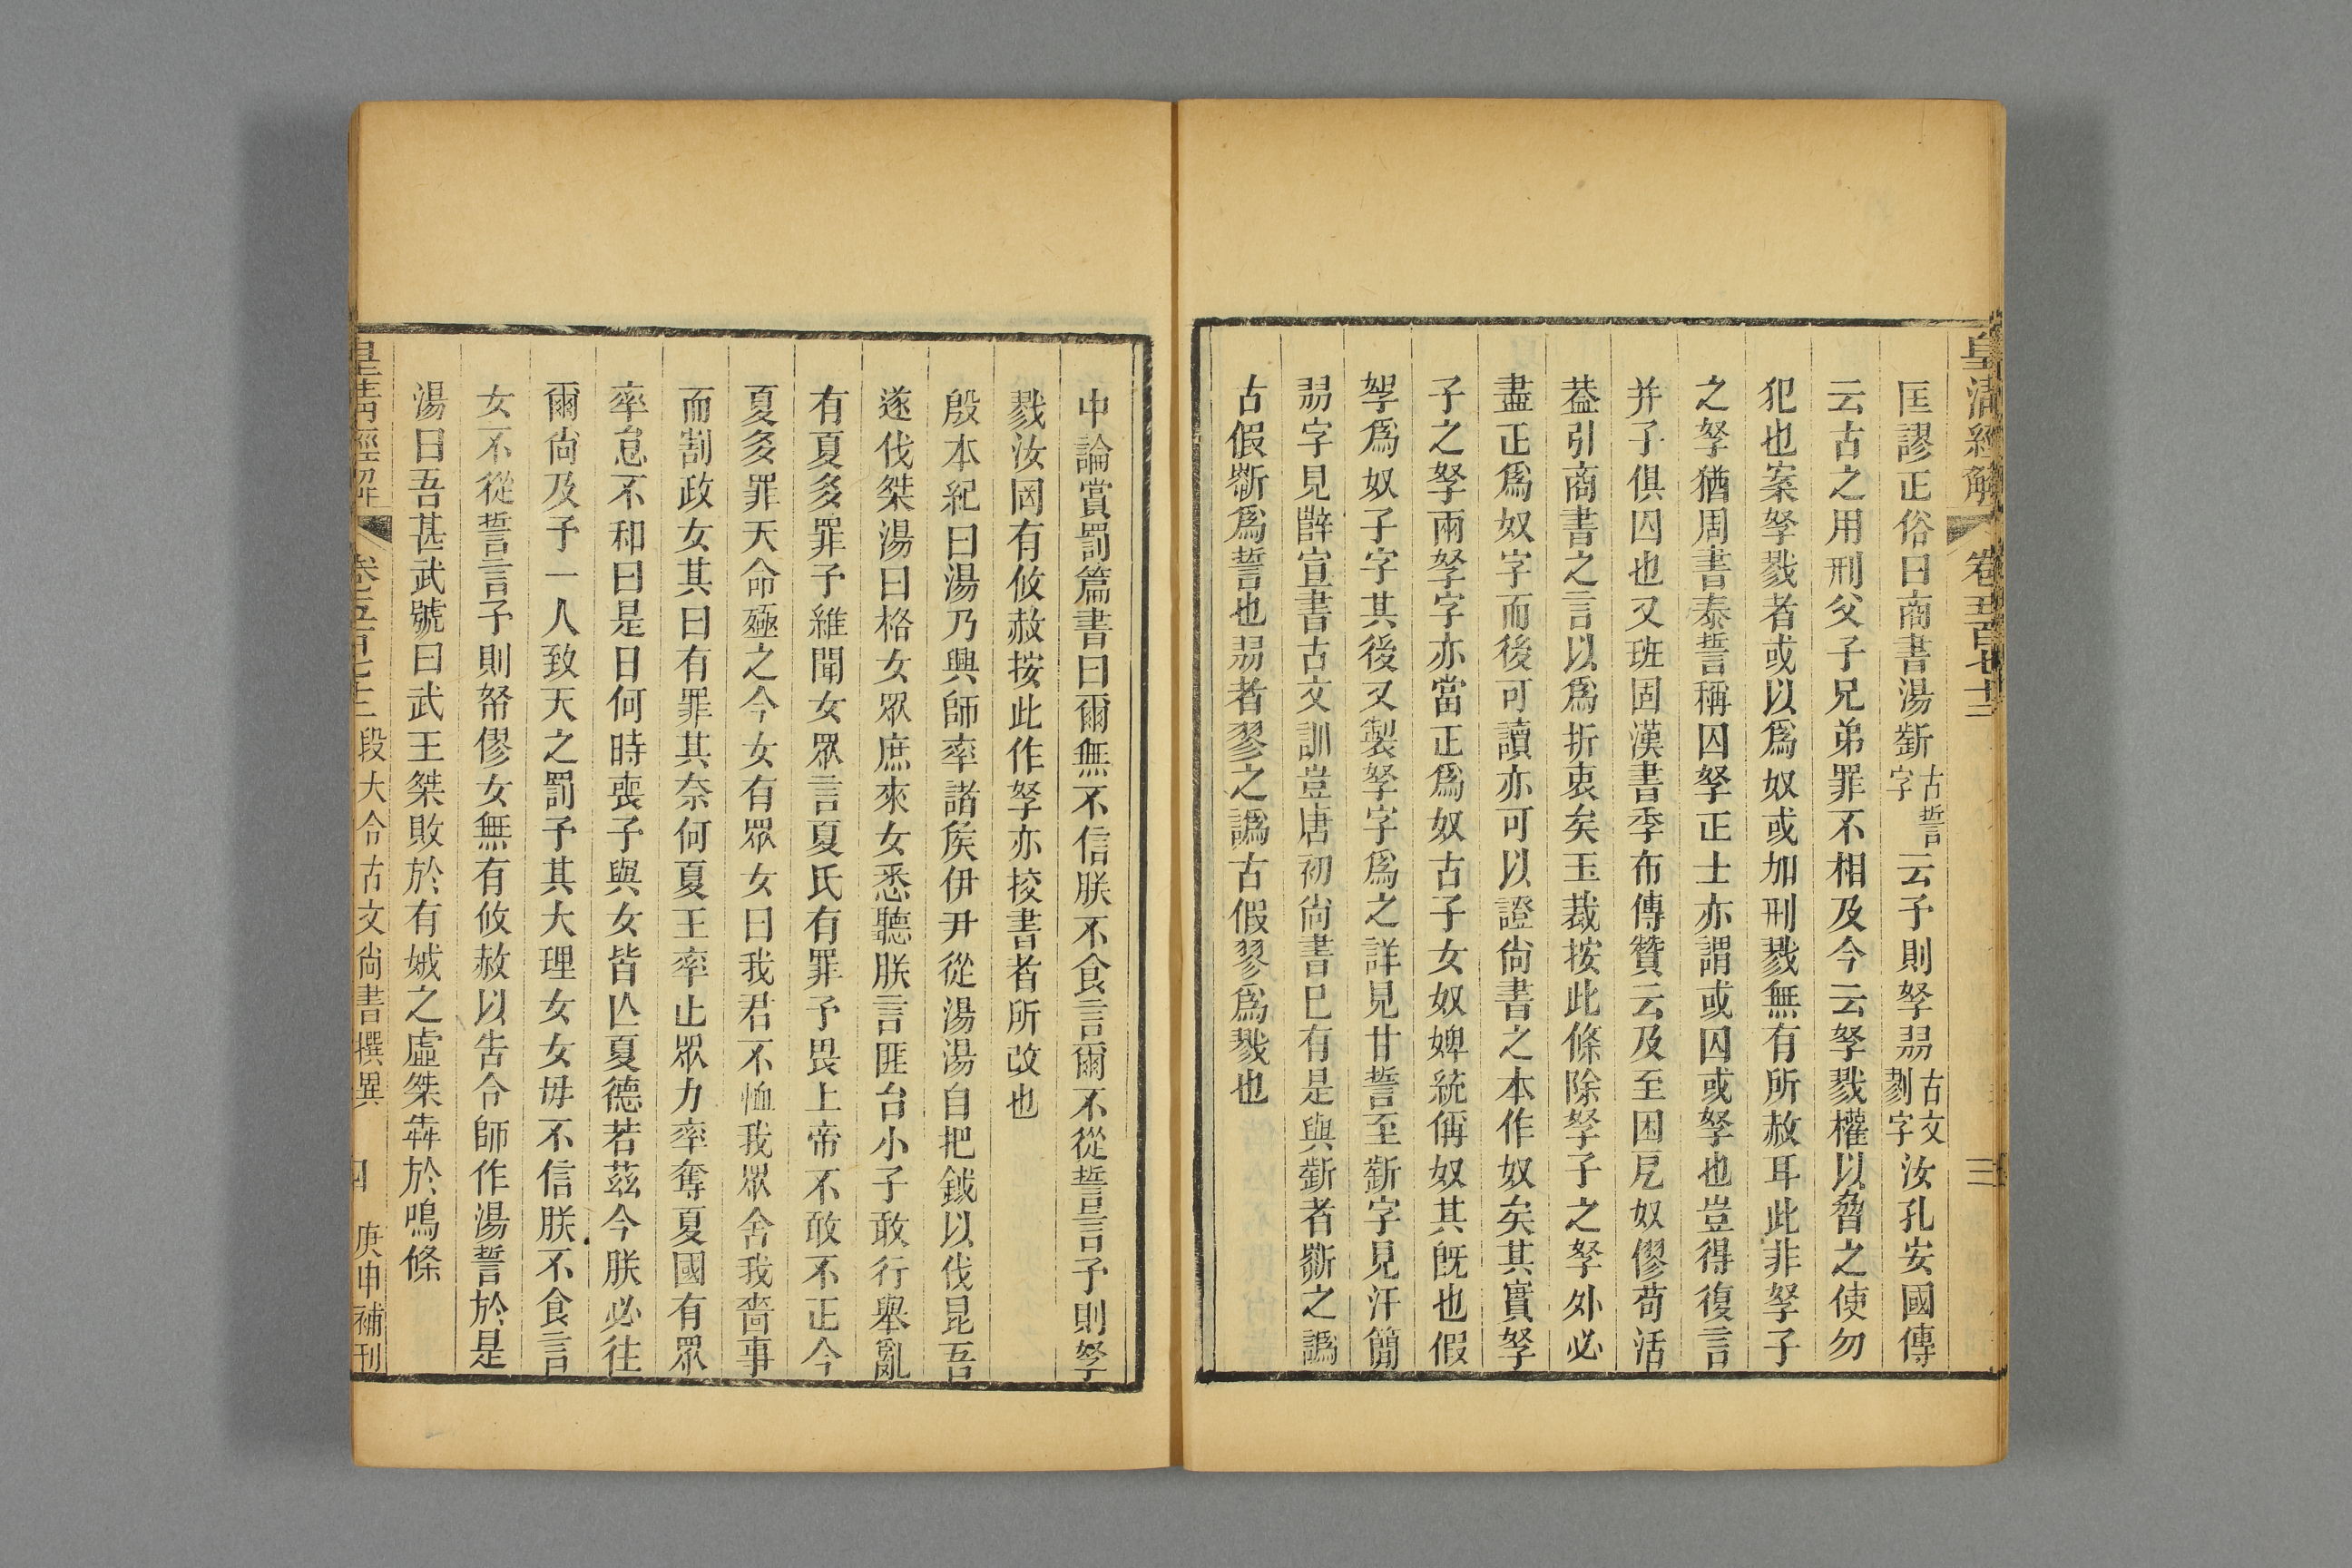 皇清經解 卷五百七十三 三
匡謬正俗曰商書湯斳古誓字云予則孥𠛱古文剹字汝孔安國傳
云古之用刑父子兄弟罪不相及今云孥戮權以脅之使勿
犯也案孥戮者或以爲奴或加刑戮無有所赦耳此非孥子
之孥猶周書泰誓稱囚孥正士亦謂或囚或孥也豈得復言
并子俱囚也又班固漢書季布傳贊云及至困戹奴僇苟活
葢引商書之言以爲折衷矣玉裁按此條除孥子之孥外必
盡正爲奴字而後可讀亦可以證尙書之本作奴矣其實孥
子之孥兩孥字亦當正爲奴古子女奴婢統偁奴其旣也假
孥爲奴子字其後又製孥字爲之詳見甘誓至斳字見汗簡
字見薛宣書古文訓豈唐初尙書已有是與斳者斷之譌
古假斷爲誓也者翏之譌古假翏爲戮也
中論賞罰篇書曰爾無不信朕不食言爾不從誓言予則孥
戮汝罔有攸赦按此作孥亦挍書者所改也
殷本紀曰湯乃興師率諸矦伊尹從湯湯自把鉞以伐昆吾
遂伐桀湯曰格女眾庶來女悉聽朕言匪台小子敢行舉亂
有夏多罪予維聞女眾言夏氏有罪予畏上帝不敢不正今
夏多罪天命殛之今女有眾女曰我君不恤我眾舍我嗇事
而割政女其曰有罪其奈何夏王率止眾力率奪夏國有眾
率怠不和曰是日何時喪予與女皆亾夏德若茲今朕必往
爾尙及予一人致天之罰予其大理女女毋不信朕不食言
女不從誓言予則帑僇女無有攸赦以告令師作湯誓於是
湯曰吾甚武號曰武王桀敗於有娀之虛桀犇於鳴條
皇淸經解 卷五百七十三 段大令古文尙書撰異 四 庚申補刊